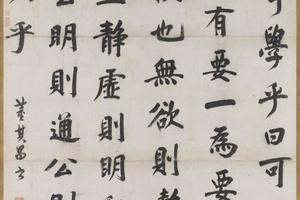 可學乎曰可
有要一為要
欲也無欲則靜
靜虛則明
公明則通公則
乎
董其昌書